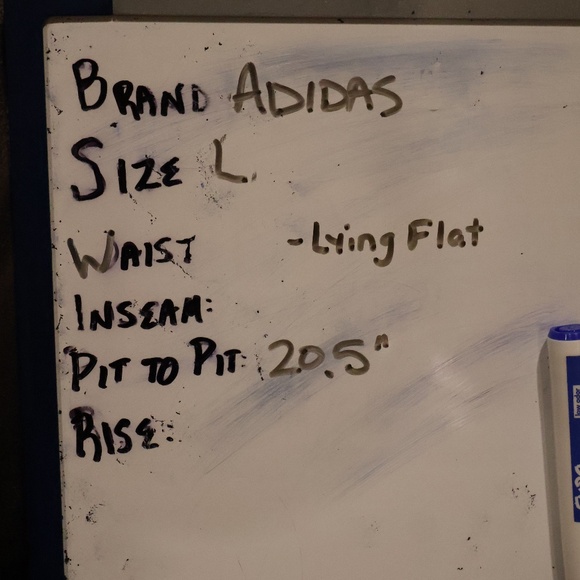 BRAND ADIDAS
SIZE L.
WAIST -Lying Flat
INSEAM:
PIT TO PIT: 20.5"
RISE: